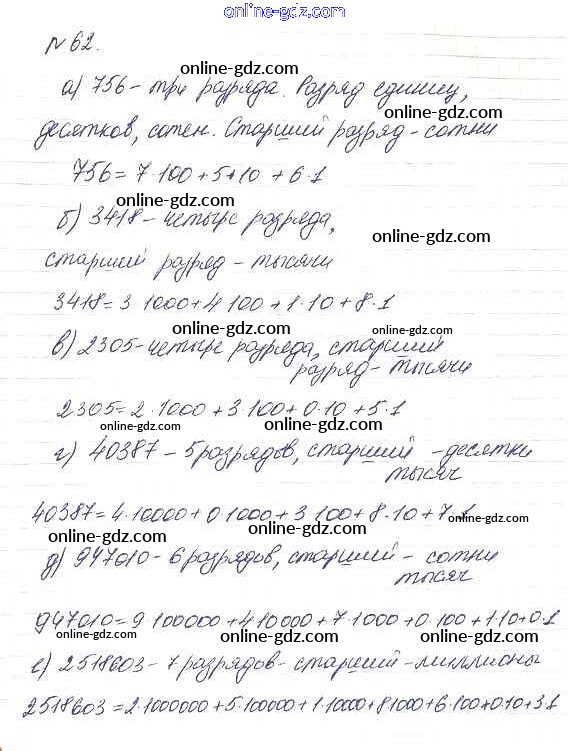 online-gdz.com
№62.
online-gdz.com
а) 756 - три разряда. Разряд единиц,
online-gdz.com
десятков, сотен. Старший разряд - сотни
756 = 7 100 + 5+10 + 6·1
online-gdz.com
б) 3418 - четыре разряда,
online-gdz.com
старший разряд - тысячи
3418 = 3 1000 + 4 100 + 1·10 + 8·1
online-gdz.com online-gdz.com
в) 2305 - четыре разряда, старший
разряд - тысячи
online-gdz.com
2305 = 2·1000 + 3·100 + 0·10 + 5·1
online-gdz.com
г) 40387 - 5 разрядов, старший - десятки
online-gdz.com тысяч
40387 = 4·10000 + 0 1000 + 3 100 + 8·10 + 7·1
online-gdz.com
online-gdz.com
д) 947010 - 6 разрядов, старший - сотни
online-gdz.com тысяч
947010 = 9 100000 + 4 10000 + 7·1000 + 0·100 + 1·10 + 0·1
online-gdz.com online-gdz.com online-gdz.com
е) 2518603 - 7 разрядов - старший - миллионы
online-gdz.com
2518603 = 2·1000000 + 5·100000 + 1·10000 + 8 1000 + 6·100 + 0·10 + 3·1
online-gdz.com online-gdz.com